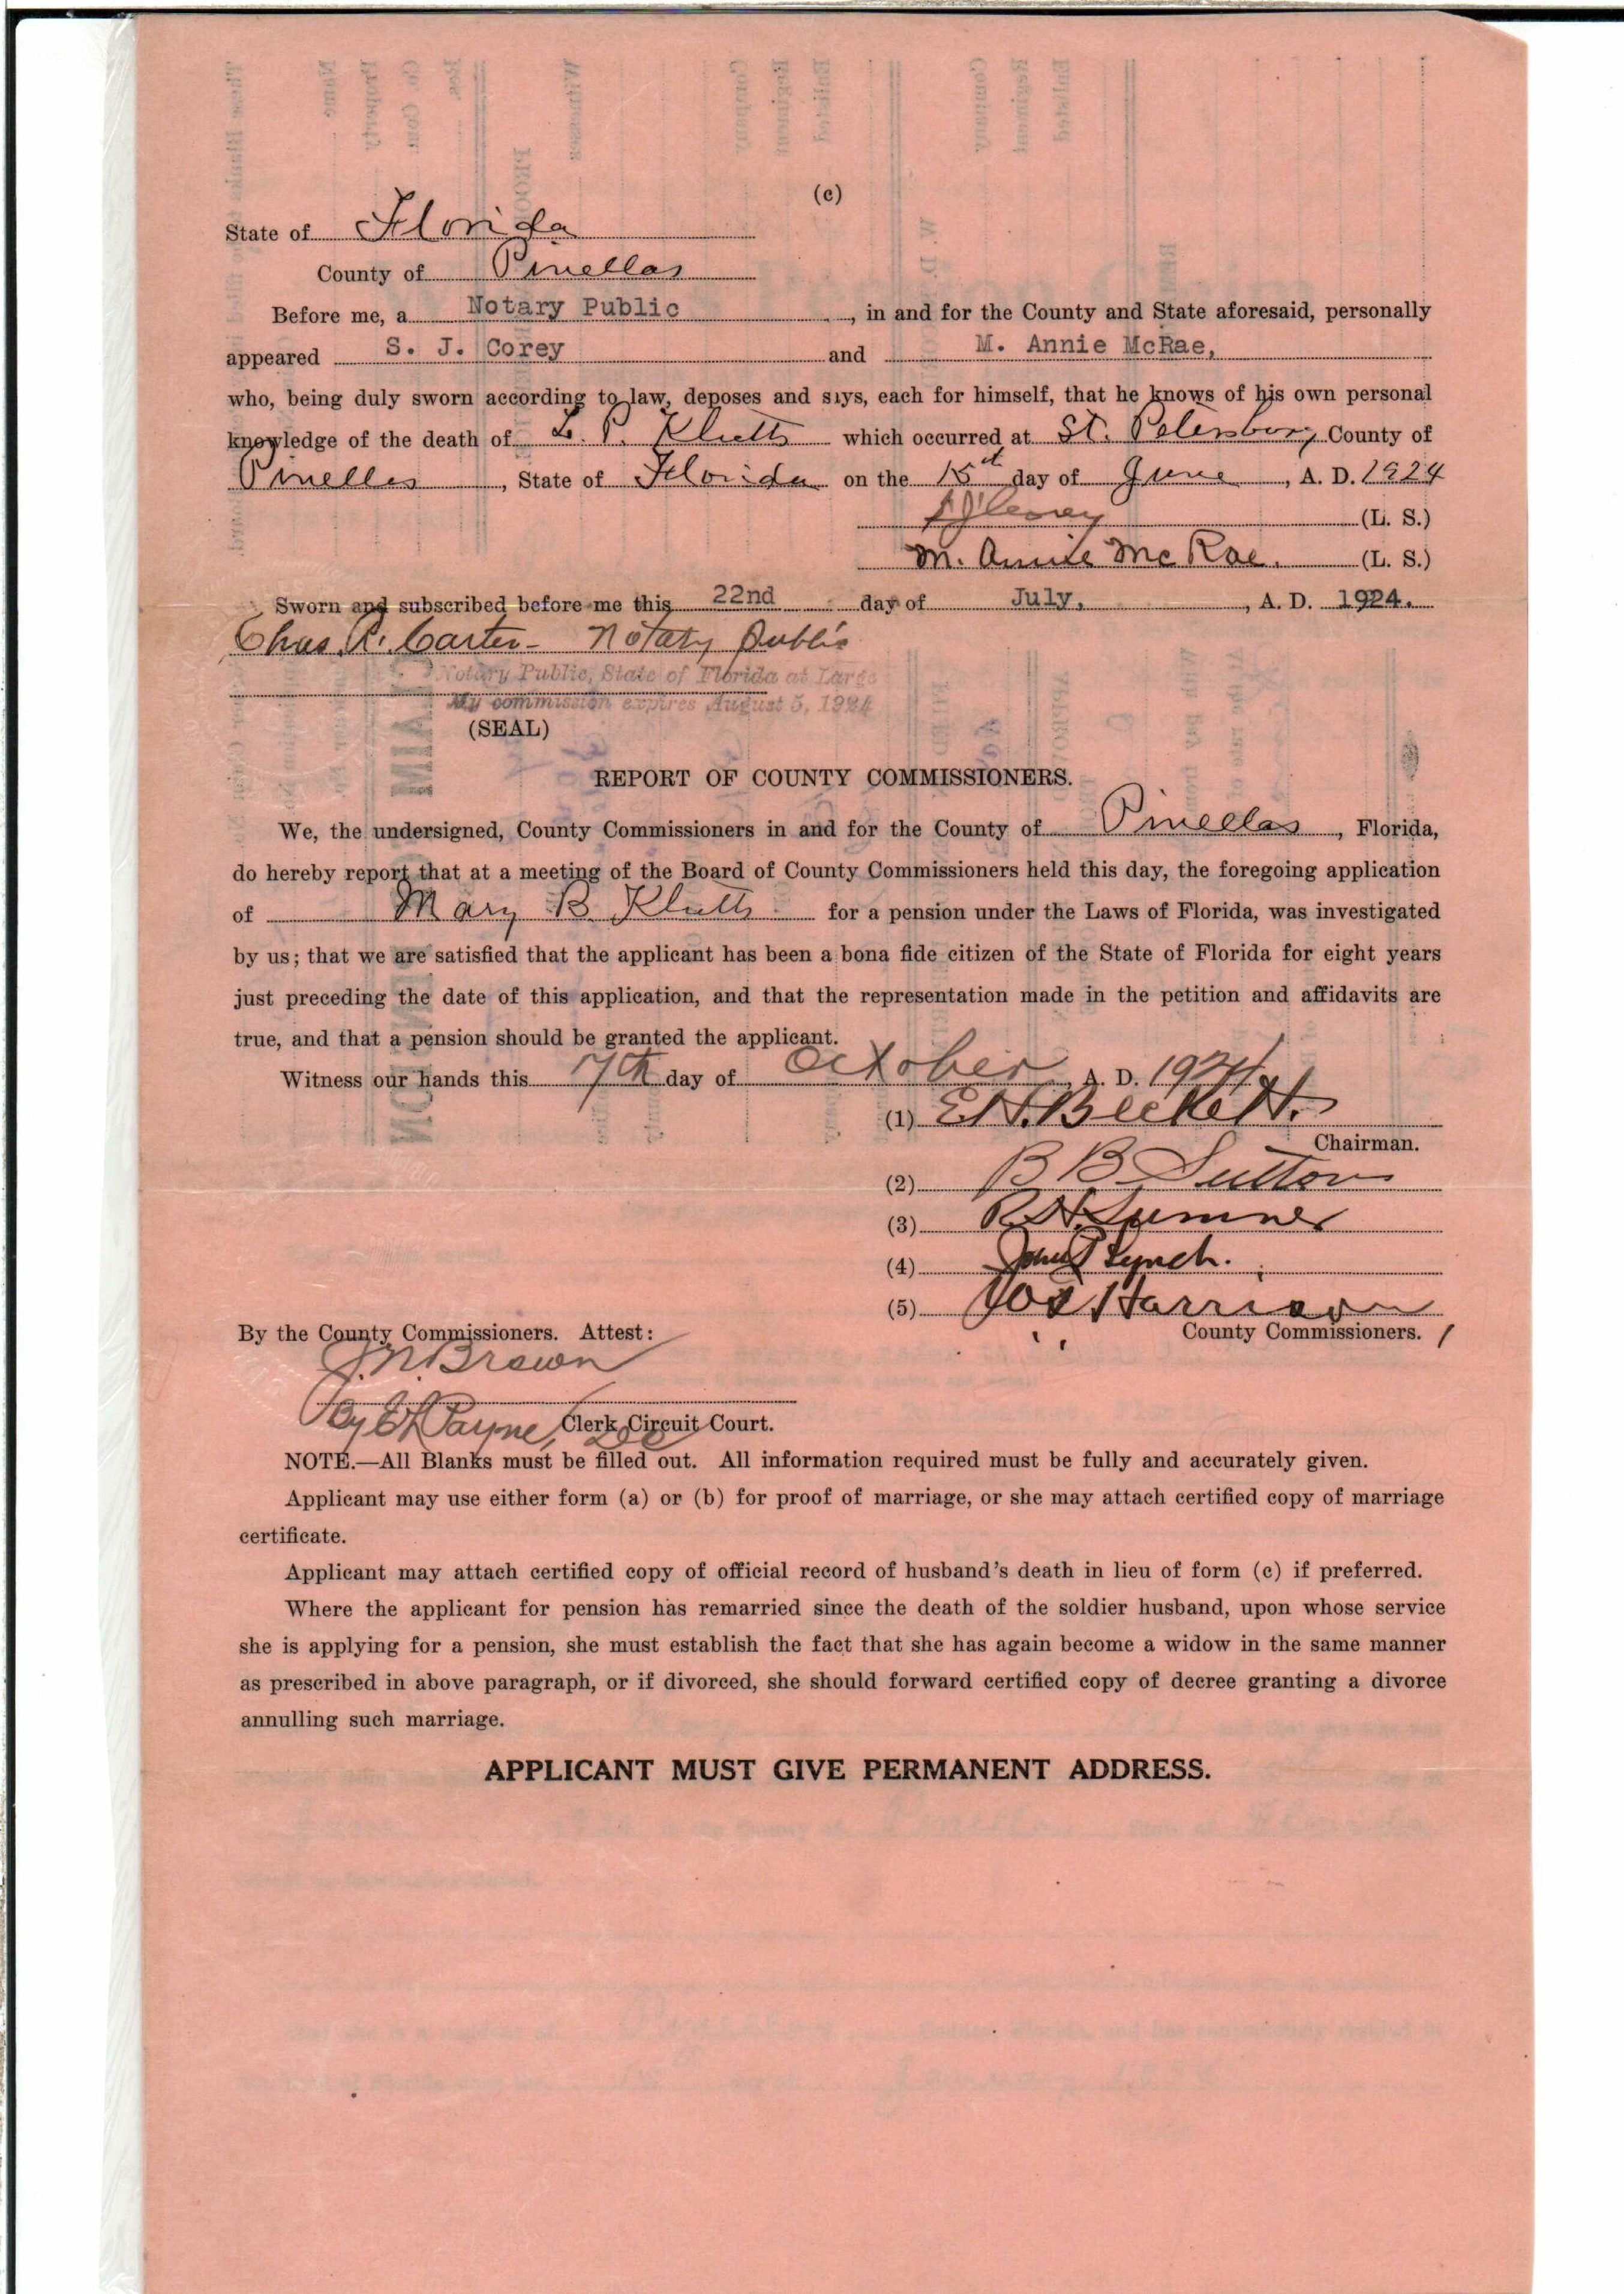 (c)
State of Florida
County of Pinellas
Before me, a Notary Public, in and for the County and State aforesaid, personally
appeared S. J. Corey and M. Annie McRae,
who, being duly sworn according to law, deposes and says, each for himself, that he knows of his own personal
knowledge of the death of L. P. Klutts which occurred at St. Petersburg County of
Pinellas, State of Florida on the 15th day of June, A. D. 1924
S J Corey (L. S.)
M. Annie McRae. (L. S.)
Sworn and subscribed before me this 22nd day of July, A. D. 1924.
Chas. R. Carter - Notary Public
Notary Public, State of Florida at Large
My commission expires August 5, 1924
(SEAL)
REPORT OF COUNTY COMMISSIONERS.
We, the undersigned, County Commissioners in and for the County of Pinellas, Florida,
do hereby report that at a meeting of the Board of County Commissioners held this day, the foregoing application
of Mary B. Klutts for a pension under the Laws of Florida, was investigated
by us; that we are satisfied that the applicant has been a bona fide citizen of the State of Florida for eight years
just preceding the date of this application, and that the representation made in the petition and affidavits are
true, and that a pension should be granted the applicant.
Witness our hands this 7th day of October, A. D. 1924
(1) E H. Beckett.
Chairman.
(2) B B Sutton
(3) R. H. Sumner
(4) Lynch.
(5) Harrison
By the County Commissioners. Attest: County Commissioners.
J. N. Brown
By E H Payne, DC Clerk Circuit Court.
NOTE.—All Blanks must be filled out. All information required must be fully and accurately given.
Applicant may use either form (a) or (b) for proof of marriage, or she may attach certified copy of marriage
certificate.
Applicant may attach certified copy of official record of husband's death in lieu of form (c) if preferred.
Where the applicant for pension has remarried since the death of the soldier husband, upon whose service
she is applying for a pension, she must establish the fact that she has again become a widow in the same manner
as prescribed in above paragraph, or if divorced, she should forward certified copy of decree granting a divorce
annulling such marriage.
APPLICANT MUST GIVE PERMANENT ADDRESS.